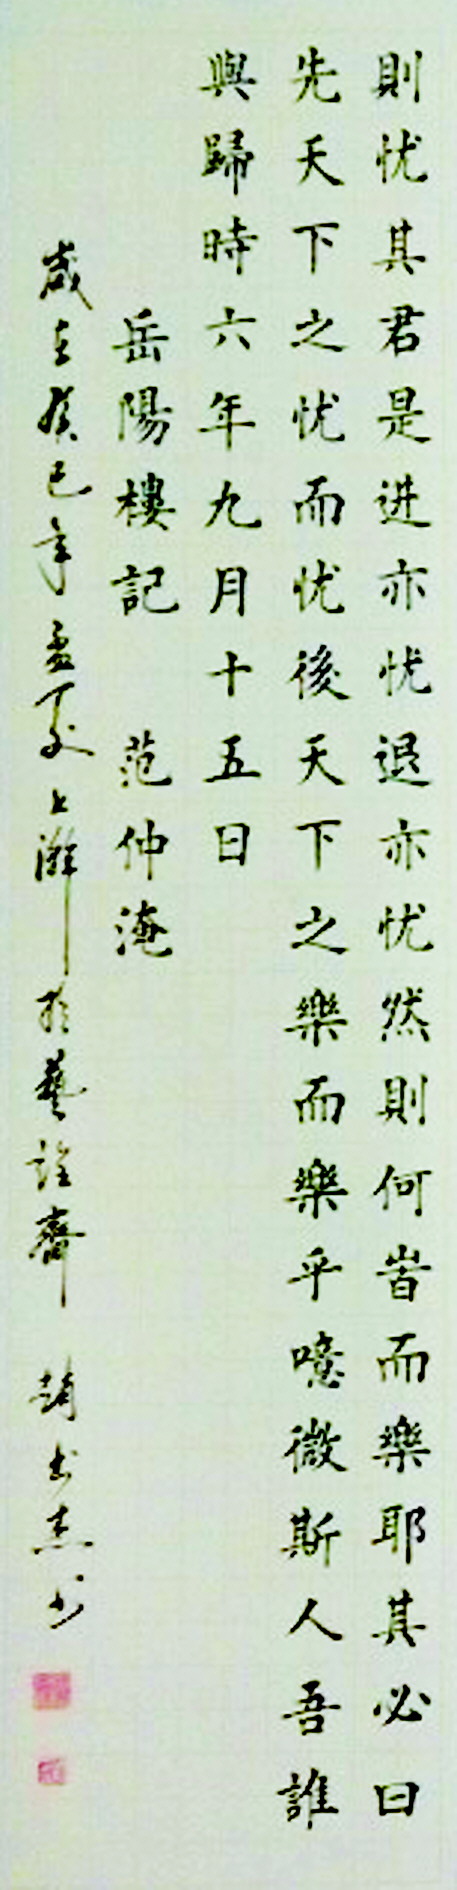 則忧其君是进亦忧退亦忧然則何峕而樂耶其必曰
先天下之忧而忧後天下之樂而樂乎噫微斯人吾誰
與歸時六年九月十五日
岳陽樓記 范仲淹
歲在癸巳年孟夏上澣於藝詮齋 趙書杰书